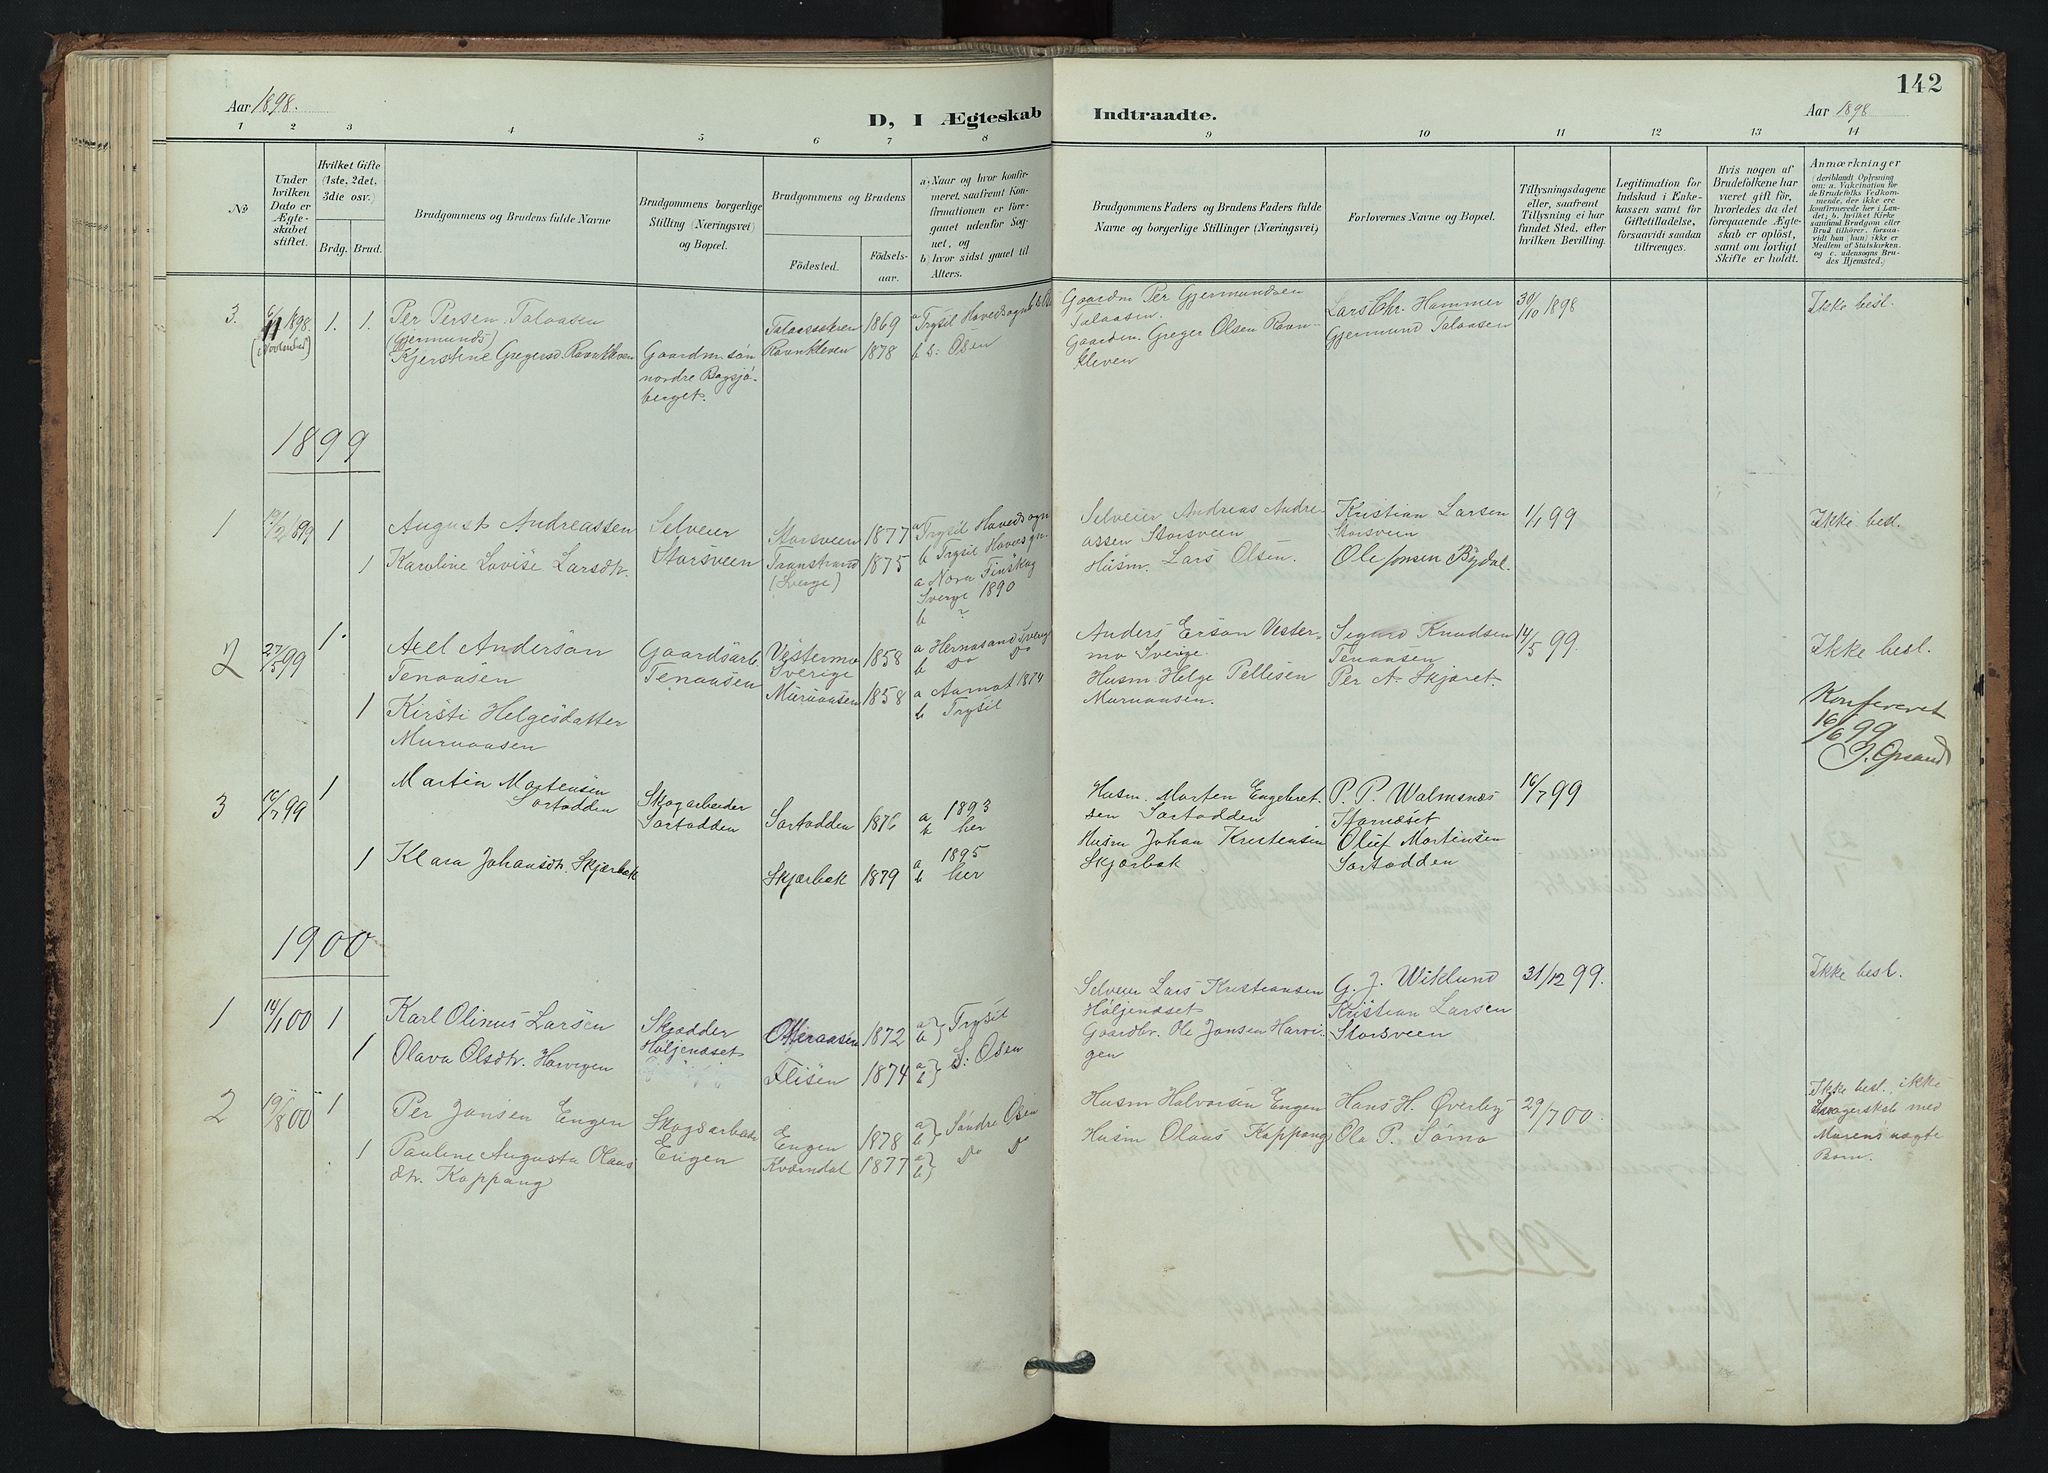 142
Aar 1898.
D, I Ægteskab Indtraadte.
Aar 1898
1 2 3 4 5 6 7 8 9 10 11 12 13 14
No
Under hvilken Dato er Ægteskabet stiftet.
Hvilket Gifte (1ste, 2det, 3die osv.)
Brdg. Brud.
Brudgommens og Brudens fulde Navne
Brudgommens borgerlige Stilling (Næringsvei) og Bopæl.
Brudgommens og Brudens
Födested.
Födsels-aar.
a) Naar og hvor konfirmeret, saafremt Konfirmationen er foregaaet udenfor Sognet, og
b) hvor sidst gaaet til Alters.
Brudgommens Faders og Brudens Faders fulde Navne og borgerlige Stillinger (Næringsvei)
Forlovernes Navne og Bopæl.
Tillysningsdagene eller, saafremt Tillysning ei har fundet Sted, efter hvilken Bevilling.
Legitimation for Indskud i Enkekassen samt for Giftetilladelse, forsaavidt saadan tiltrænges.
Hvis nogen af Brudefolkene har været gift før, hvorledes da det foregaaende Ægteskab er opløst, samt om lovligt Skifte er holdt.
Anmærkninger
(deriblandt Oplysning om: a. Vakcination for de Brudefolks Vedkommende, der ikke ere konfirmerede her i Landet; b. hvilket Kirkesamfund Brudgom eller Brud tilhører, forsaavidt han (hun) ikke er Medlem af Statskirken, og c. udensogns Brudes Hjemsted.)
3. 6/11 1898. 1. 1.
Per Persen Talaasen
(Gjermunds)
Kjerstine Gregersd. Ravnkleven
Gaardm. søn
nordre Bagsjö-
berget.
1869
Ravnkleven 1878
a Trysil Hovedsogn
b S: Osen
Gaardm Per Gjermundsen
Talaasen.
Gaardm. Greger Olsen Ravn-
kleven
Lars Chr. Hammer
Gjermund Talaasen
30/10 1898
Ikke besl.
1899
1 1
August Andreassen
1 Karoline Lovise Larsdtr.
Selveier
Storsveen
Storsveen 1877
Transtrand 1875
(Sverge)
a Trysil Hovedsogn
b Trysil Hovedsogn.
a Nora Finskog
Sverge 1890
b ?
Selveier Andreas Andre-
assen Storsveen
Husm. Lars Olsen.
Kristian Larsen
Storsveen
Ole Jonsen Bydal.
1/1 99
Ikke besl.
2 27/5 99 1.
Axel Anderson
Tenaasen
1 Kirsti Helgesdatter
Muruaasen
Gaardsarb.
Tenaasen
Vestermo 1858
Sverige
Muruaasen 1858
a Hernosand Sverig
b Do Do
a Aamot 1874
b Trysil
Anders Erson Vester-
mo Sverige.
Husm. Helge Pellisen
Muruaasen.
Sigurd Knudsen
Tenaasen
Per A. Skjæret.
14/5 99.
Ikke besl.
Konfereret
16/6 99
3 16/7 99 1
Martin Mortensen
Sortodden
1 Klara Johansdtr. Skjærbæk
Skogarbeider
Sortodden
Sortodden 1876
Skjærbæk 1879
a 1893
b her
a 1895
b her
Husm. Morten Engebret-
sen Sortodden
Husm Johan Kristensen
Skjærbæk
P. P. Walmsnæs
Oluf Mortensen
Sortodden
16/7 99
1900
1 14/1 00 1
Karl Olinus Larsen
1 Olava Olsdtr. Harvigen
Skrædder
Höljendset
1872
Flisen 1874
a) b) Trysil
a) b) S: Osen
Selveier Lars Kristiansen
Höljendset
Gaardbr. Ole Jonsen Harvi-
gen
G. J. Wiklund
Kristian Larsen
Storsveen
31/12 99.
Ikke besl.
2 19/8 00 1
Per Jonsen Engen
1 Pauline Augusta Olaus
dtr. Koppang
Skogsarbeider
Engen
Engen 1878
Kværndal 1877
a) b) Söndre Osen
a) b) Do Do
Husm Halvorsen Engen
Husm Olaus Koppang
Hans H. Øverby
Ola P. Sörmo
29/7 00.
Ikke besl. ikke
Svogerskab med
Barn.